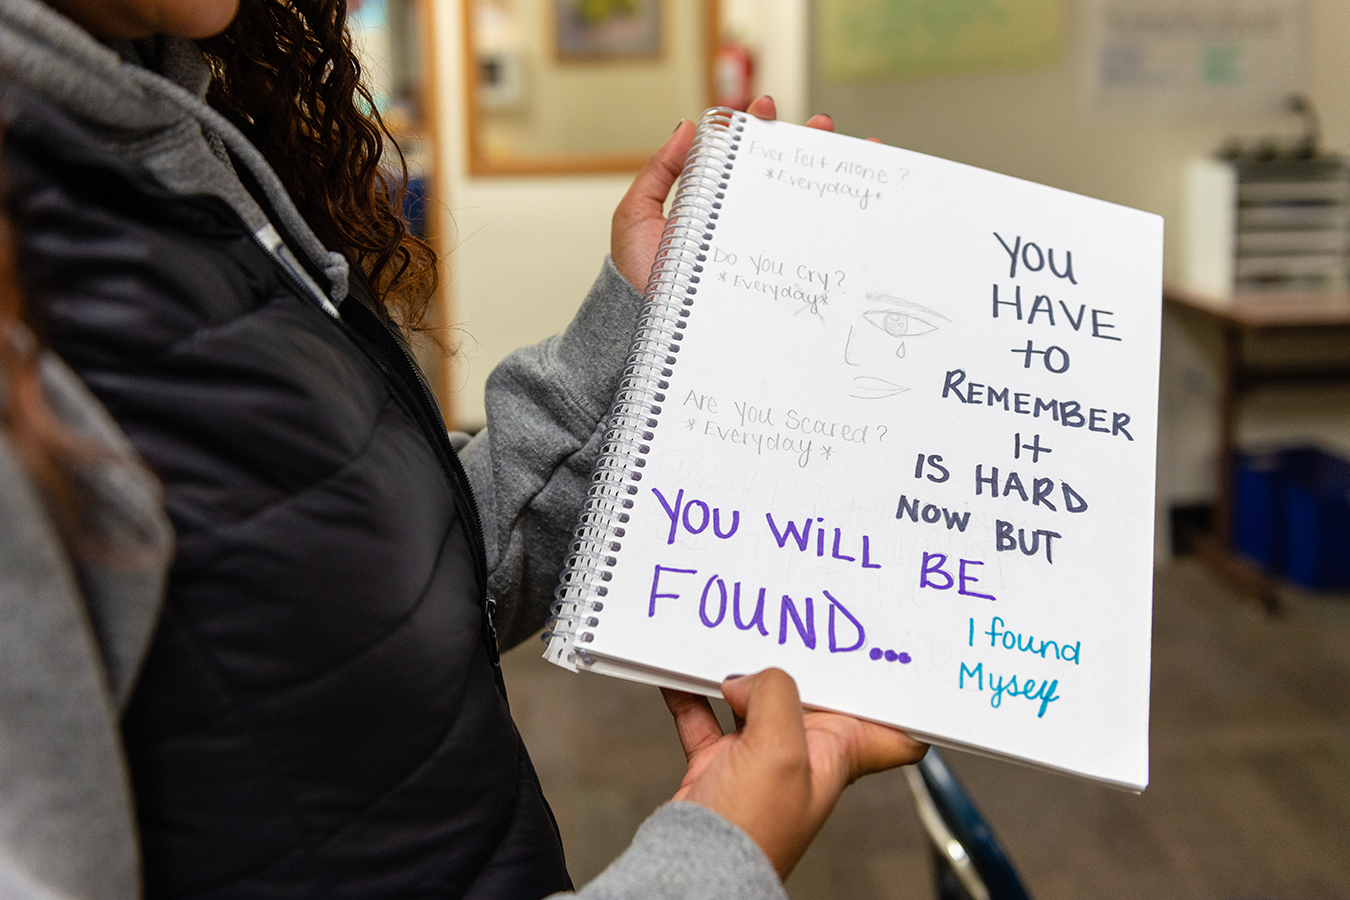 Ever Felt Alone?
*Everyday*
Do you cry?
*Everyday*
Are you scared?
*Everyday*
YOU
HAVE
to
REMEMBER
It
IS HARD
NOW BUT
YOU WiLL BE
FOUND...
I found
Myself